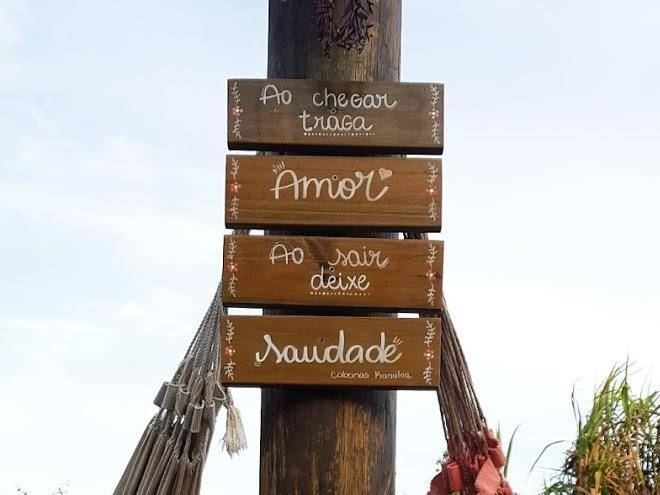 Ao chegar
traga
Amor
Ao sair
deixe
saudade
Cabanas Kanaloa